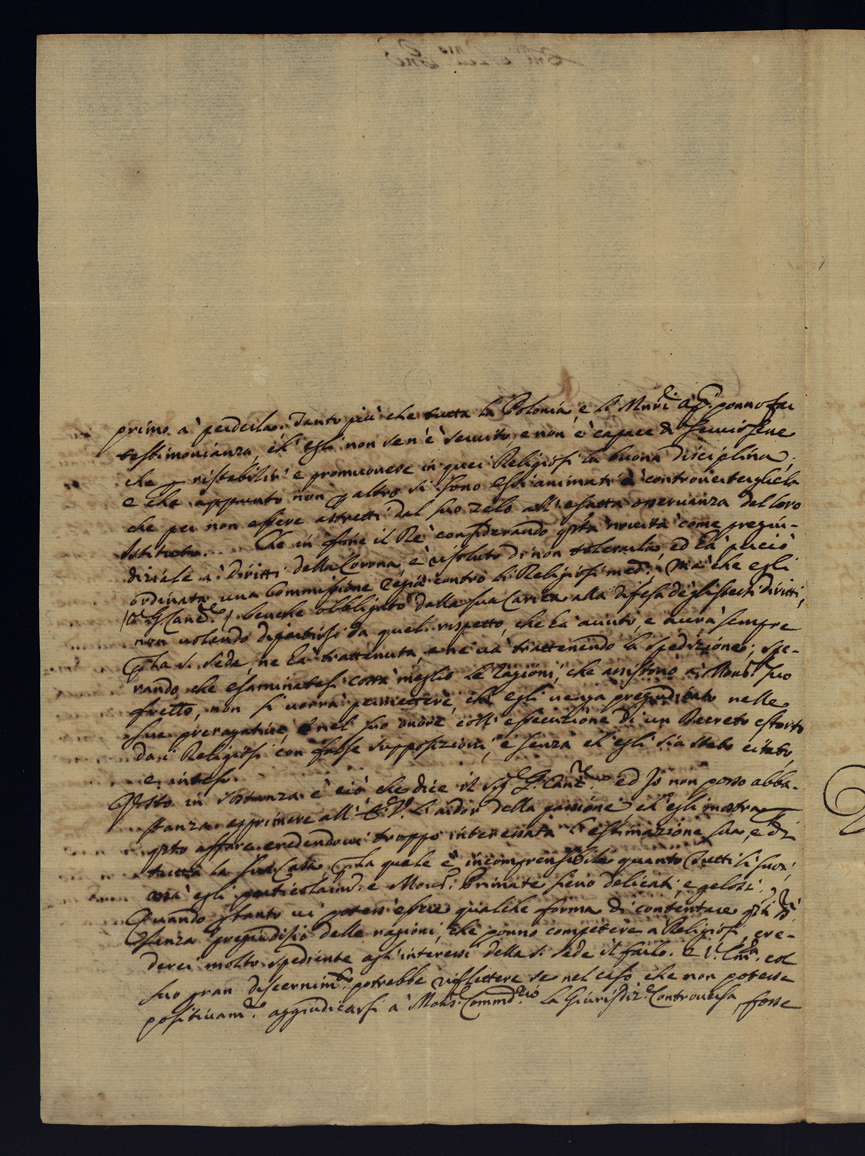 primo à perderla. Tanto più che tutta la Polonia, e li Nunzi Apci ponno far
testimonianza, ch'egli non se n'è servito, e non è capace di servirsene
che p ristabilire e promuovere in quei Religiosi la buona disciplina,
e che appunto non p altro si sono essi animati à controvertergliela
che per non essere astretti dal suo zelo all'esatta osservanza del loro
Istituto. Che in fine il Rè considerando qsta novità come pregiu-
diziale a' Diritti della Corona, è risoluto di non tolerarla, ed hà perciò
ordinata una Commissione Regia contro li Religiosi medi; Mà che egli
benche obbligato dalla sua Carica alla difesa degli stessi diritti,
non volendo dipartirsi da quel rispetto, che hà avuto, e avrà sempre
p la S. Sede, ne hà trattenuta, e ne và trattenendo la spedizione; spe-
rando, che esaminatesi costà meglio le ragioni, che assistono a Monsr suo
frello, non si vorrà permettere, ch'egli venga pregiudicato nelle
sue prerogative, e nel suo onore coll'essecuzione di un Decreto estorto
da Religiosi con false supposizioni, e senza ch'egli sia stato citato,
e inteso.
Qsto in sostanza è ciò che dice il Sigr G. Cane ed Io non posso abba-
stanza esprimere all' E. V. l'ardor della passione ch'egli mostra p
qsto affare, credendovi troppo interessata l'estimazione sua, e di
tutta la sua Casa, p la quale è incomprensibile quanto tutti li suoi
così egli particolarme. e Monsr. Primate sieno delicati, e gelosi.
Quando p tanto vi potess'essere qualche forma di contentare qsti Sri
senza pregiudizio delle ragioni, che ponno competere a Religiosi, cre-
derei molto spediente agl'interessi della S. Sede il farlo. E V. Ema. col
suo gran discernimo. potrebbe riflettere se nel caso, che non potesse
positivame. aggiudicarsi à Mons. Commdrio la Giurisdize Controversa, fosse